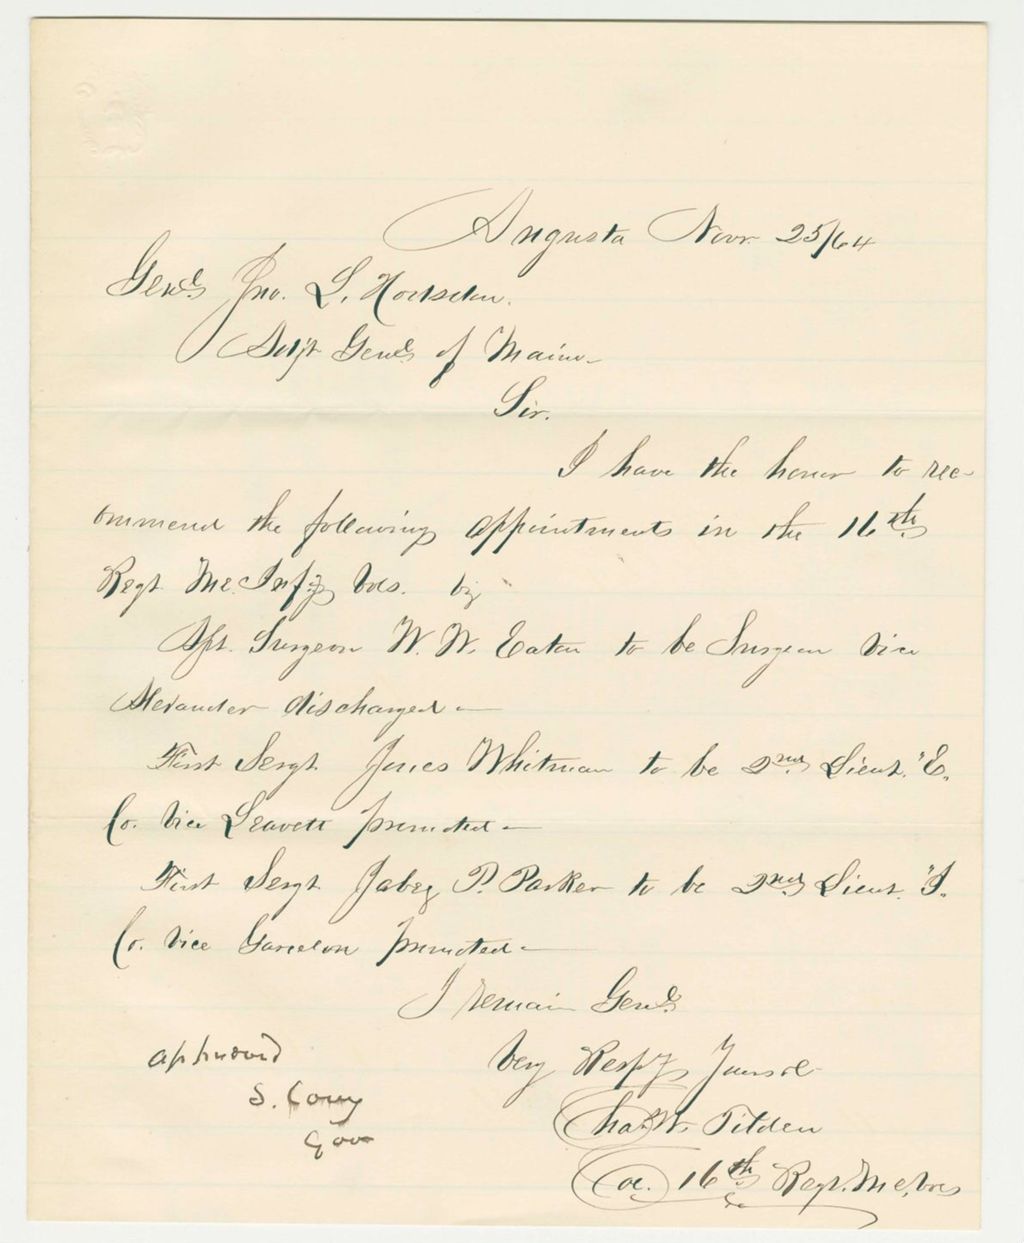 Augusta Novr 25/64
Genl. Jno. L. Hodsdon.
Adjt Genl of Maine
Sir.
I have the honor to rec-
ommend the following appointments in the 16th
Regt Me. Infy Vols. viz
Asst. Surgeon W. W. Eaton to be Surgeon vice
Alexander discharged —
First Sergt. Jones Whitman to be 2nd Lieut. "E.
Co. vice Leavett promoted —
First Sergt. Jabez P. Parker to be 2nd Lieut. "I.
Co. vice Garcelon promoted —
I remain Genl.
Very Respy Yours &c
Chas. W. Tilden
Col. 16th Regt. Me. Vols
approved
S. Cony
Gov